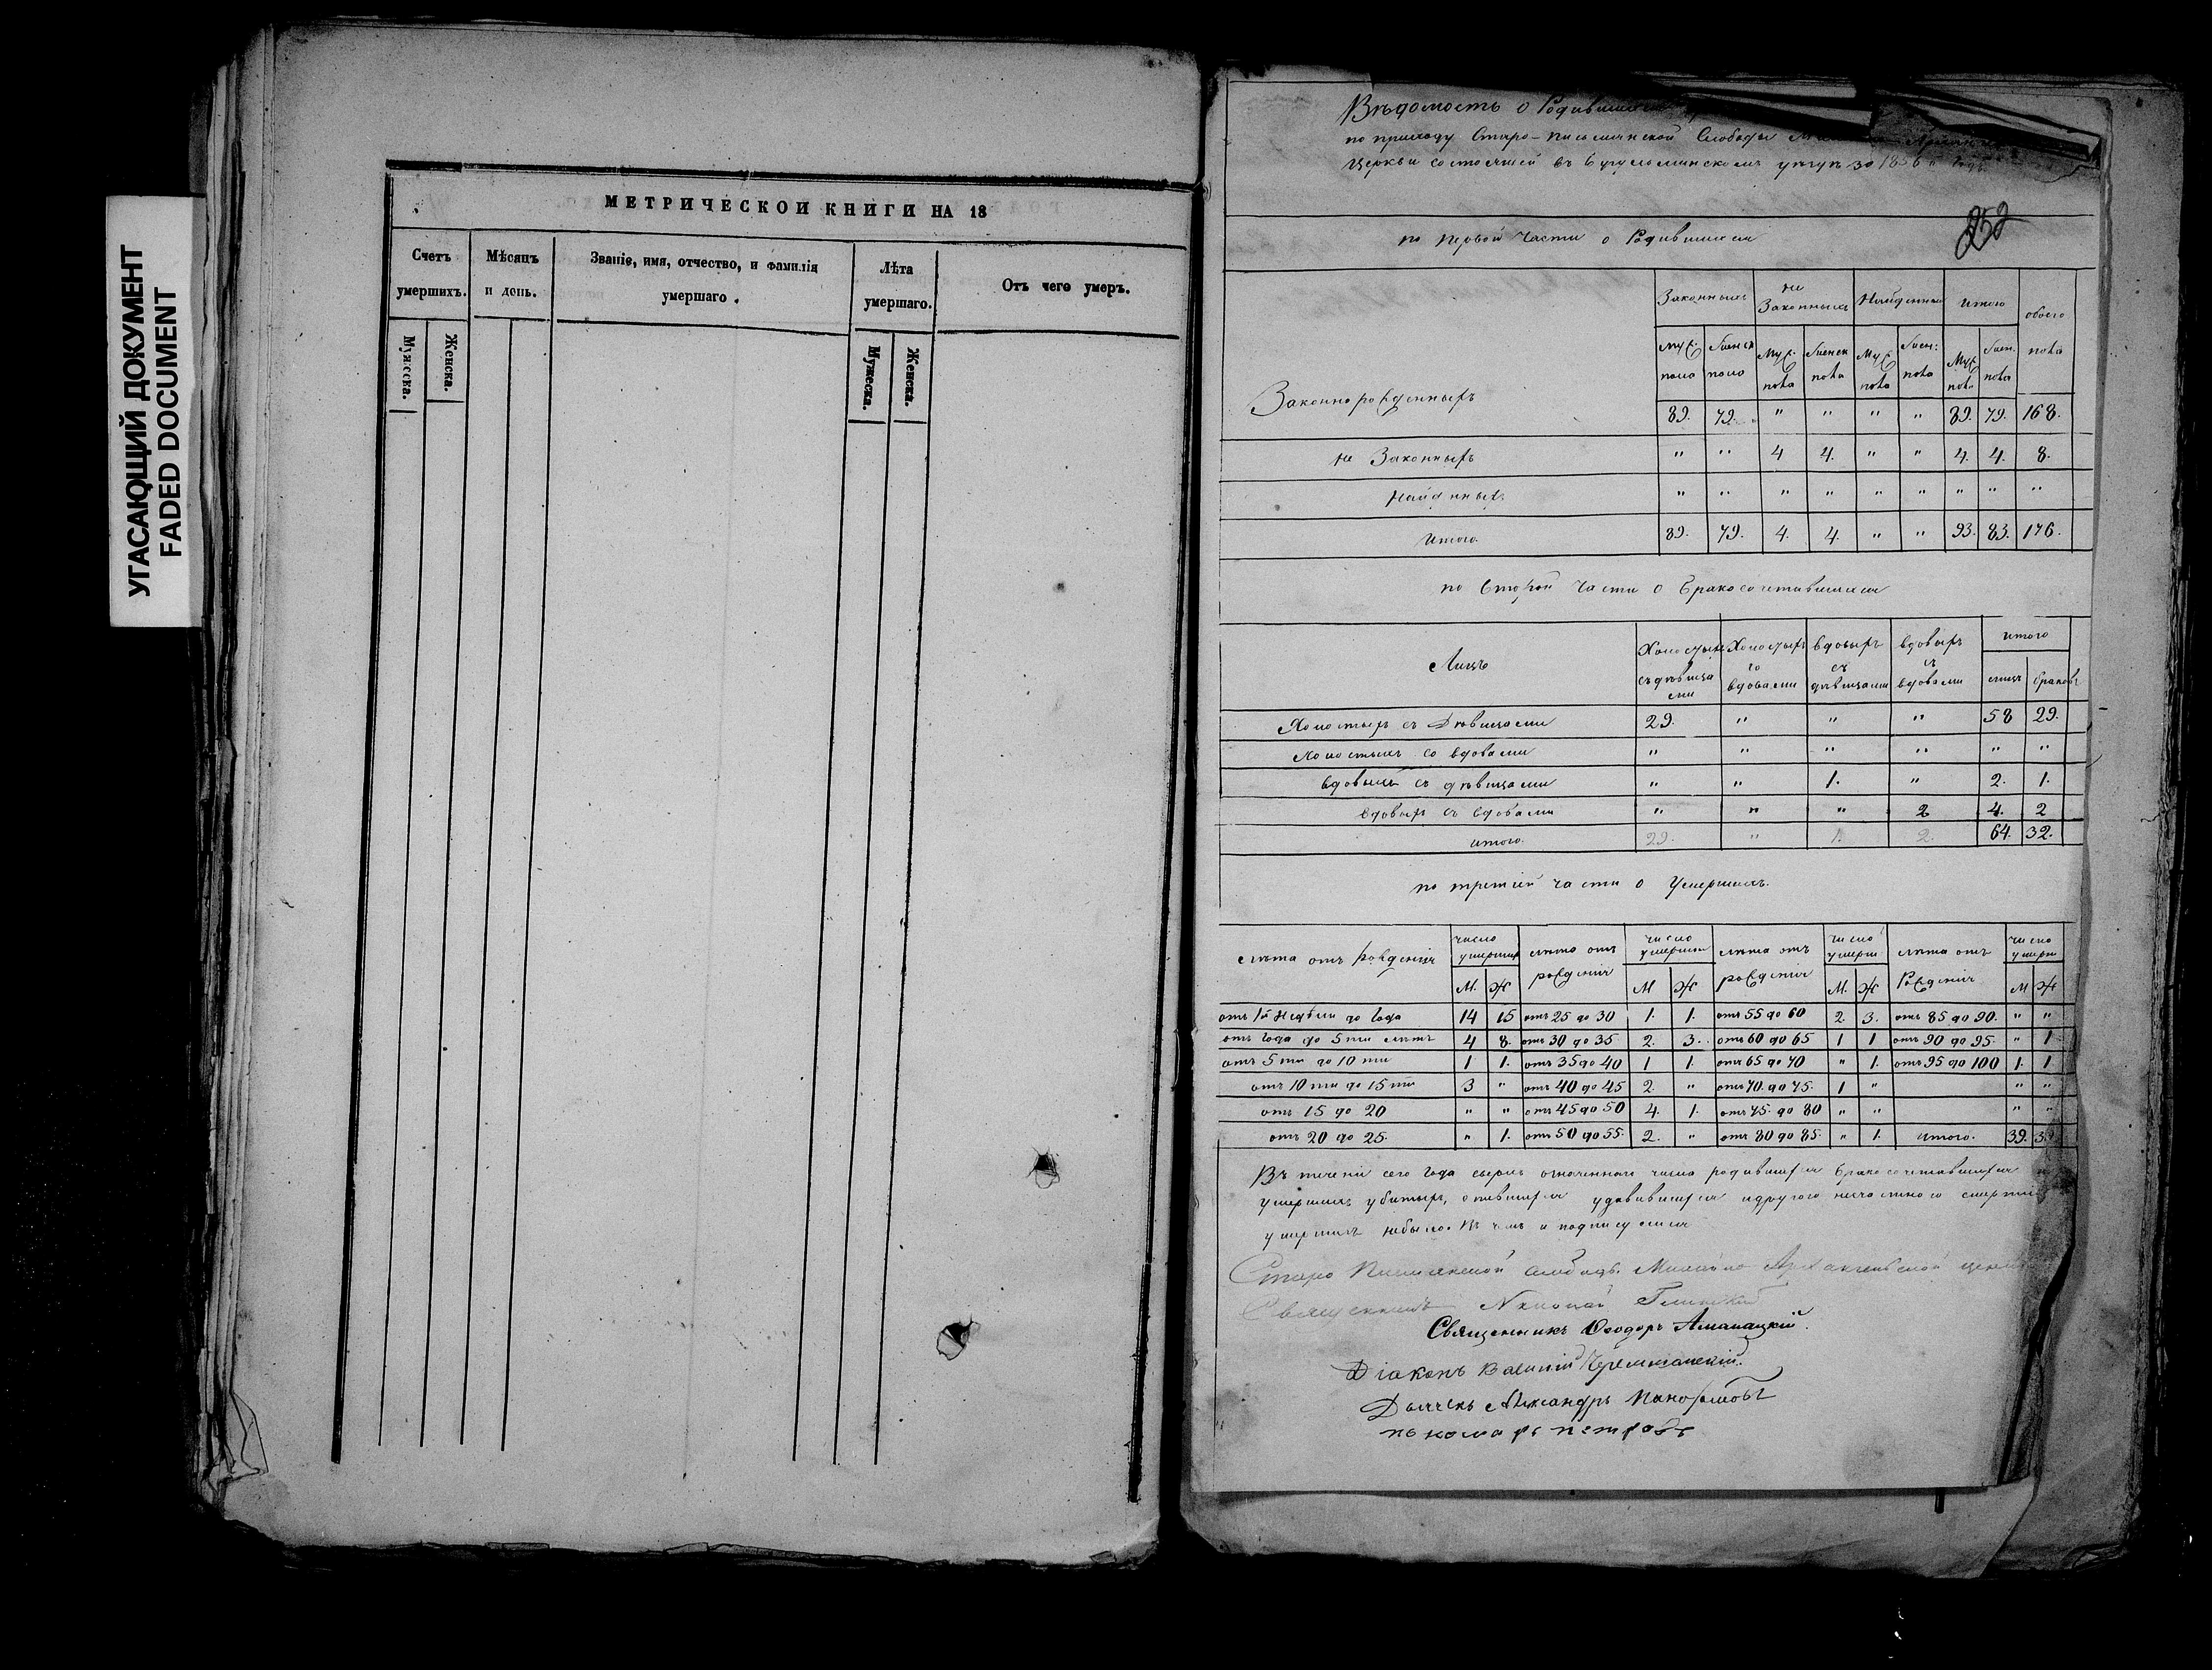 УГАСАЮЩИЙ ДОКУМЕНТ
FADED DOCUMENT
МЕТРИЧЕСКОЙ КНИГИ НА 18
Счетъ умершихъ. Мѣсяцъ и день. Званіе, имя, отчество, и фамилія умершаго. Лѣта умершаго. Отъ чего умеръ.
Мужеска. Женска. Мужеска. Женска.
Вѣдомость о Родившихся
по приходу Старо-Письмянской Слободы
Церкви состоящей въ Бугульминскомъ уѣздѣ за 1856 годъ
252
по первой части о Родившихся
Законныхъ не Законныхъ Найденныхъ итого обоего пола
Муж. пола Женск пола Муж. пола Женск пола Муж пола Жен. пола Муж. пола Жен. пола
Законнорожденныхъ 89. 79. " " " " 89. 79. 168.
не Законныхъ " " 4 4. " " 4. 4. 8.
Найднныхъ " " " " " " " " "
Итого. 89. 79. 4. 4. " " 93. 83. 176.
по Второй части о бракосочетавшихся
Лицъ Холостыхъ съ дѣвицами Холостыхъ со вдовами вдовыхъ съ дѣвицами вдовыхъ съ вдовами итого
лицъ браковъ
Холостыхъ съ Дѣвицами 29. " " " 58 29.
Холостыхъ со вдовами " " " " " "
вдовыхъ съ дѣвицами " " 1. " 2. 1.
вдовыхъ съ вдовами " " " 2 4. 2
итого. 29. " 1. 2. 64. 32.
по третьей части о Умершихъ.
лѣта отъ рожденія число умершихъ лѣта отъ рожденія число умерших лѣта отъ рожденія число умерш лѣта отъ Рожденія число умерш
М. Ж М Ж М. Ж М Ж
отъ 1й недѣли до года 14 15 отъ 25 до 30 1. 1. отъ 55 до 60 2. 3. отъ 85 до 90. " "
отъ года до 5 ти лѣтъ 4 8. отъ 30 до 35 2. 3. отъ 60 до 65 1 1 отъ 90 до 95. " 1
отъ 5 ти до 10 ти 1 1. отъ 35 до 40 1 1. отъ 65 до 70 " 1. отъ 95 до 100 1. 1
отъ 10 ти до 15 ти 3 " отъ 40 до 45 2. " отъ 70. до 75. 1 " " "
отъ 15 до 20 " " отъ 45 до 50 4. 1. отъ 75. до 80 " " " "
отъ 20 до 25. " 1. отъ 50 до 55. 2. " отъ 80 до 85. " 1. итого. 39.
Въ теченіи сего года сверхъ означеннаго числа родившихся бракосочетавшихся
умершихъ убитыхъ, опившихся удавившихся и другого несчастного смертію
умершихъ небыло. въ чемъ и подписуемся
Старо Письмянской слободы Михайло Архангельской церкви
Священникъ Николай
Священникъ Ѳеодоръ Аманацкій.
Діаконъ Василій Черемшанскій.
Дьячекъ Александръ
пономарь петровъ